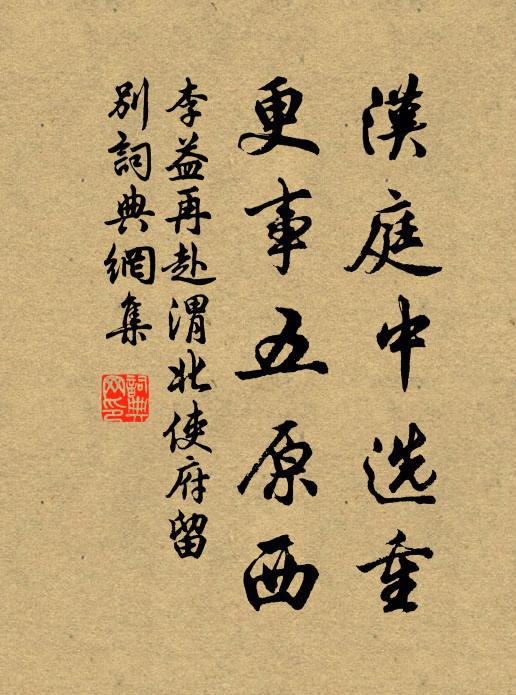 漢庭中选重
更事五原西
李益再赴渭北使府留
别詞典網集
詞典网印